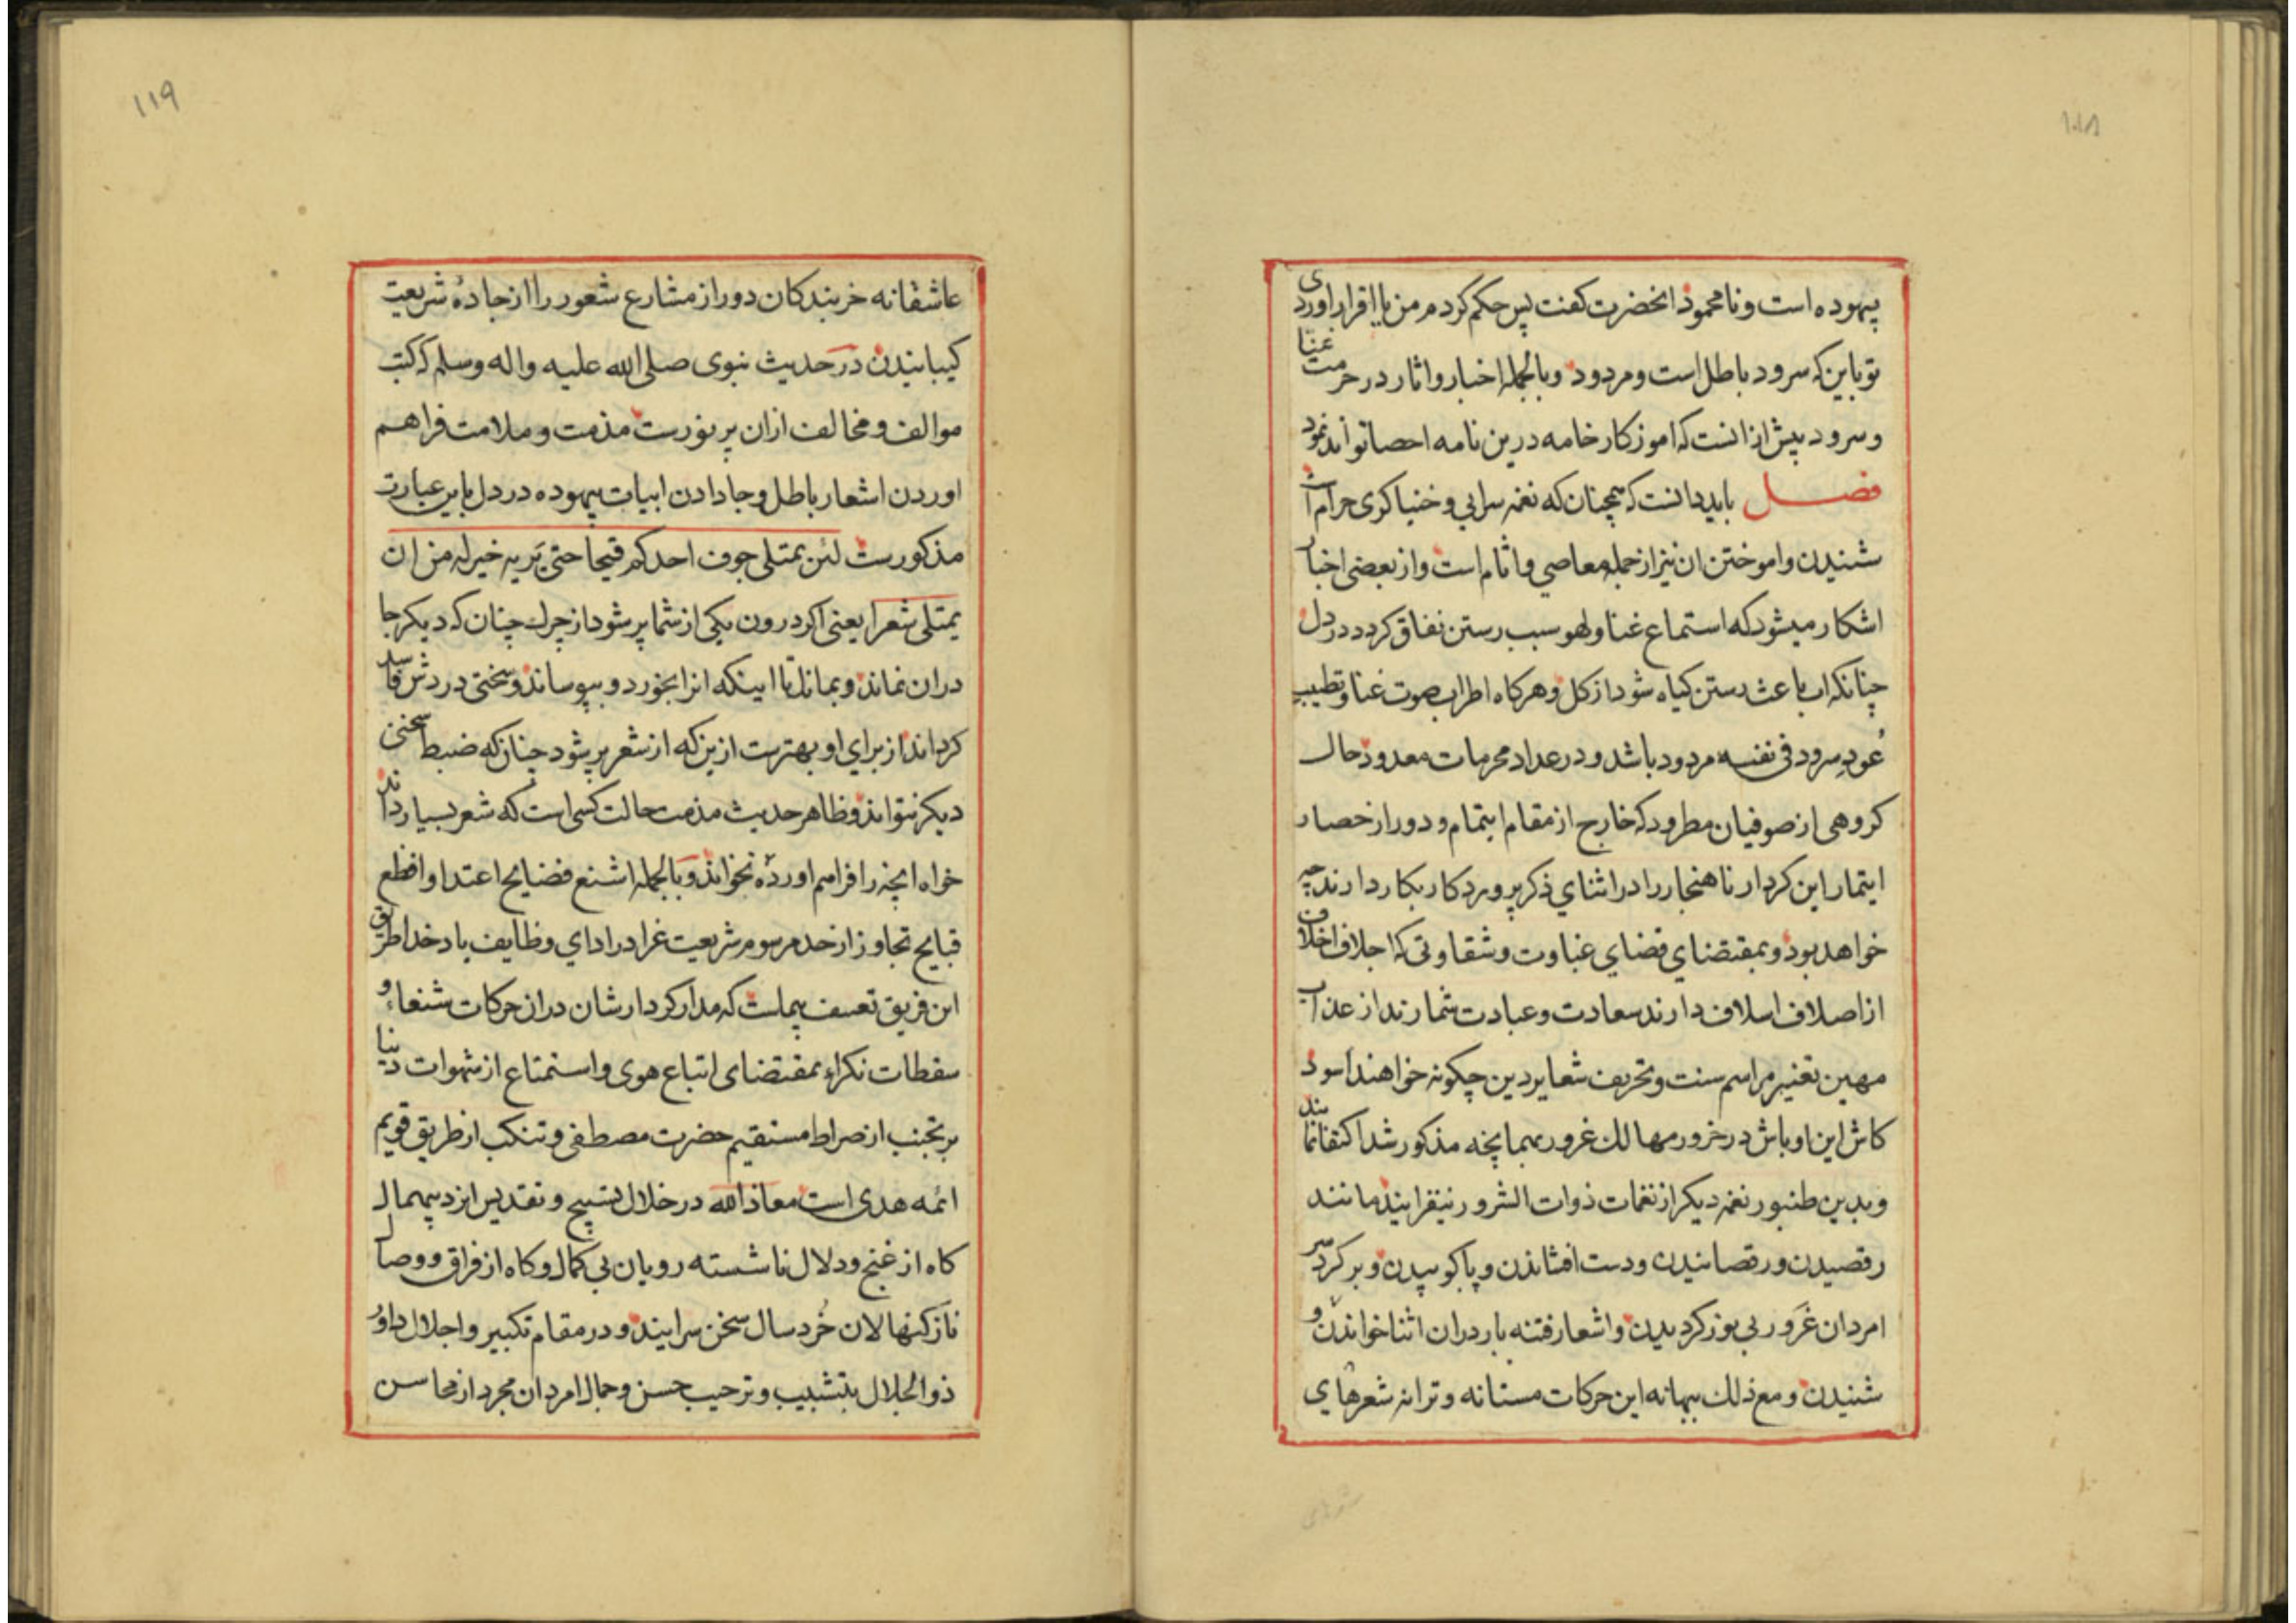 ۱۱۸
بیهوده است و نامحمود انحضرت کفت پس حکم کردم من با اقرار اوردی
تو باین که سرود باطل است و مردود و بالجمله اخبار و اثار در حرمت غنا
و سرود بیش ازانست که اموزکار خامه درین نامه احصا تواند نمود
فصل باید دانست که همچنان که نغمه سرایی و خنیاکری حرام است
شنیدن و اموختن ان نیز از جمله معاصی و اثام است و از بعضی اخبار
اشکار میشود که استماع غنا و لهو سبب رستن نفاق کردد در دل
چنانکه اب باعث رستن کیاه شود از کل و هرکاه اطراب صوت غنا و تطییب
عُودِ سرود فی نفسه مردود باشد و در عداد محرمات معدود حال
کروهی از صوفیان مطرود که خارج از مقام ایتمام و دور از حصار
ایتمار این کردار ناهنجار را در اثنای ذکر پروردکار بکار دارند چه
خواهد بود و بمقتضای قضای غباوت و شقاوتی که اجلاف اخلاف
از اصلاف اسلاف دارند سعادت و عبادت شمارند از عذاب
مهین تغییر مراسم سنت و تحریف شعایر دین چکونه خواهند اسود
کاش این اوباش در خرور مهالك غرور بهمانچه مذکور شد اکتفا نمایند
و بدین طنبور نغمه دیکر از نغمات ذوات الشرور نیفزایند مانند
رقصیدن و رقصانیدن و دست افشاندن و پا کوبیدن و بر کرد سر
امردان غَرَور بی نور کردیدن و اشعار فتنه بار دران اثنا خواندن و
شنیدن و مع ذلك ببهانه این حرکات مستانه و ترانه شعرهای
شعرهای
۱۱۹
عاشقانه خربندکان دور از مشارع شعور را از جادهٔ شریعت
کیبانیدن در حدیث نبوی صلی الله علیه واله وسلم که کتب
موالف و مخالف ازان پر نورست مذمت و ملامت فراهم
اوردن اشعار باطل و جا دادن ابیات بیهوده در دل باین عبارت
مذکورست لئن یمتلی جوف احدکم قیحا حتی یَریه خیر له من ان
یمتلی شعرا یعنی اکر درون یکی از شما پر شود از چرك چنان که دیکر جا
دران نماند و بماند تا اینکه انرا بخورد و بپوساند و سختی دردش فاسد
کرداند از برای او بهترست ازین که از شعر پر شود چنان که ضبط سخنی
دیکر نتواند و ظاهر حدیث مذمت حالت کسی است که شعر بسیار داند
خواه انچه را فراهم اوردهٔ نخواند و بالجمله اشنع فضایح اعتدا و افظع
قبایح تجاوز از حد مرسوم شریعت غرا در ادای وظایف یاد خدا طریق
این فریق تعسف پیماست که مدار کردارشان دران حرکات شنعاء و
سقطات نکراء بمقتضای اتباع هوی و استمتاع از شهوات دنیا
بر تجنب از صراط مستقیم حضرت مصطفی و تنکب از طریق قویم
ائمه هدی است معاذ الله در خلال تسبیح و تقدیس ایزد بیهمال
کاه از غنج و دلال ناشسته رویان بی کمال و کاه از فراق و وصال
نازك نهالان خُرد سال سخن سرایند و در مقام تکبیر و اجلال داور
ذوالجلال بتشبیب و ترحیب حسن و جمال امردان مجرد از محاسن